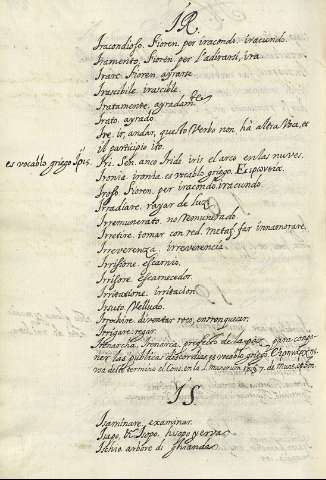 IR.
Iracondioso. Fioren. per iracondo. iracundo.
Iramento. Fioren. per l'adirarsi, ira
Iranc. Fioren. ayrarse
Irascibile. irascible.
Iratamente. ayradamte
Irato. ayrado
Ire. ir, andar, questo Verbo non há altra Voa, et
il participio ito.
es vocablo griego Ipis. Iri. Sen. anco Iride iris el arco en las nuves.
Ironia ironia. es vocablo griego.
Iroso Fioren. per iracondo iracundo.
Irradiare. rayar de luz
Irremunerato. no Remunerado.
Irretire. tomar con red. Metaf. far innamorare.
Irreverenza irreverencia.
Irrisione. escarnio.
Irrisore. escarnecedor.
Irritatione. irritacion
Irsuto. Velludo.
Irrochire. diventar roco, enronquecer.
Irrigare. regar.
Irenarcha. Irenarca. prefecto de la paz para compo-
ner las publicas discordias es vocablo griego
IS
Isaminare. examinar.
Isapo, ò Isopo. hisopo yerva
Ischio arbore di ghianda